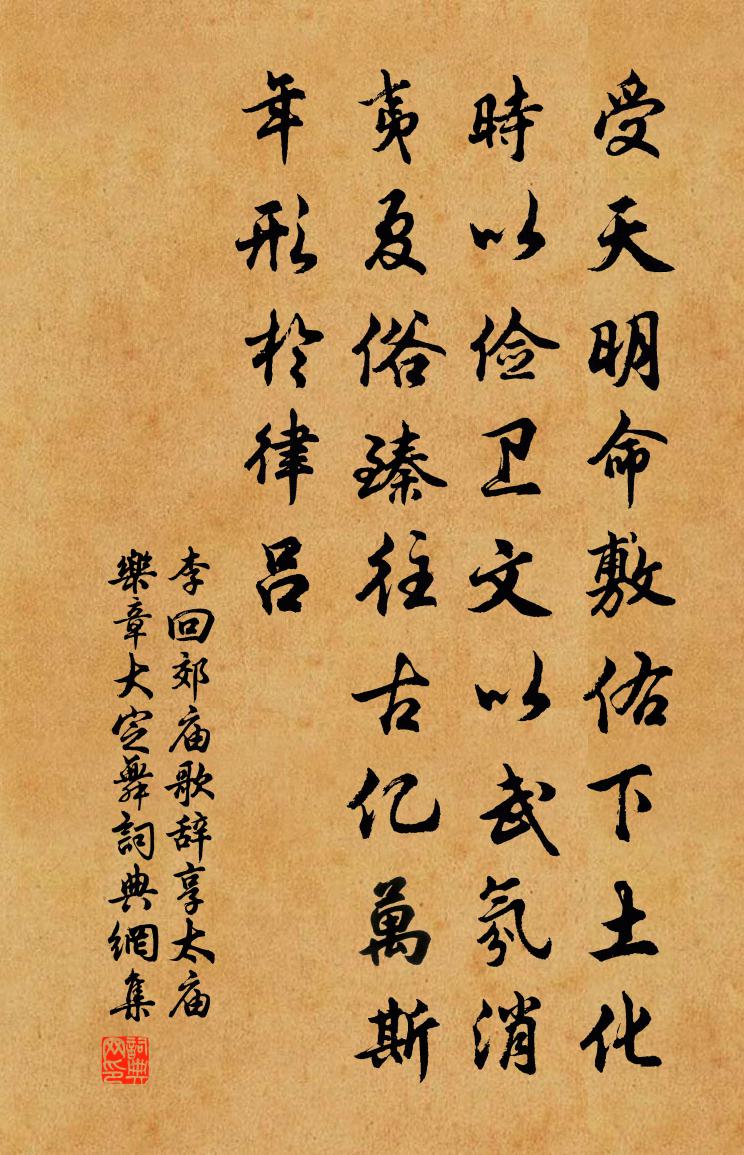 受天明命敷佑下土化
時以俭卫文以武氛消
夷夏俗臻往古亿萬斯
年形於律呂
李回郊庙歌辞享太庙
樂章大定舞詞典網集
詞典网印